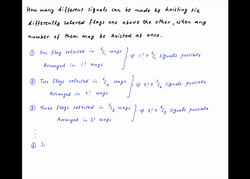 How many different signals can be made by hoisting six
differently coloured flags one above the other, when any
number of them may be hoisted at once.
① One flag selected in ⁶C₁ ways
Arranged in 1! ways
⇒ 1! × ⁶C₁ signals possible
② Two flags selected in ⁶C₂ ways
Arranged in 2! ways
⇒ 2! × ⁶C₂ signals possible
③ Three flags selected in ⁶C₃ ways
Arranged in 3! ways
⇒ 3! × ⁶C₃ signals possible
⋮
⑥ Si